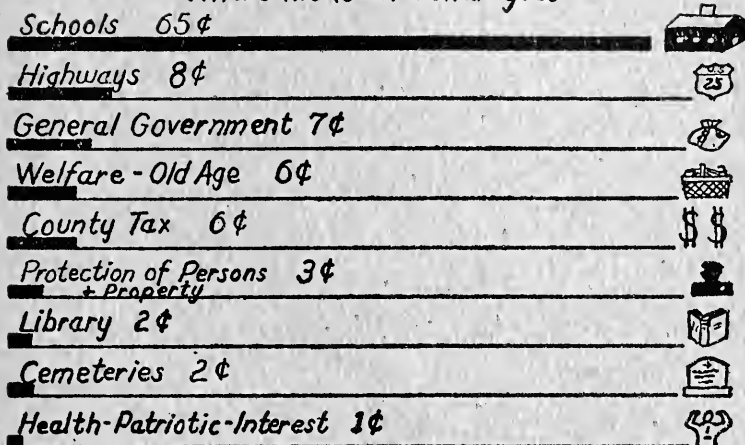 Schools 65¢
Highways 8¢
25
General Government 7¢
Welfare - Old Age 6¢
County Tax 6¢
$ $
Protection of Persons 3¢
+ Property
Library 2¢
Cemeteries 2¢
Health-Patriotic-Interest 1¢